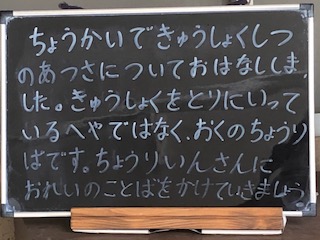 ちょうかいできゅうしょくしつ
のあつさについておはなししま
した。きゅうしょくをとりにいって
いるへやではなく、おくのちょうり
ばです。ちょうりいんさんに
おれいのことばをかけていきましょう